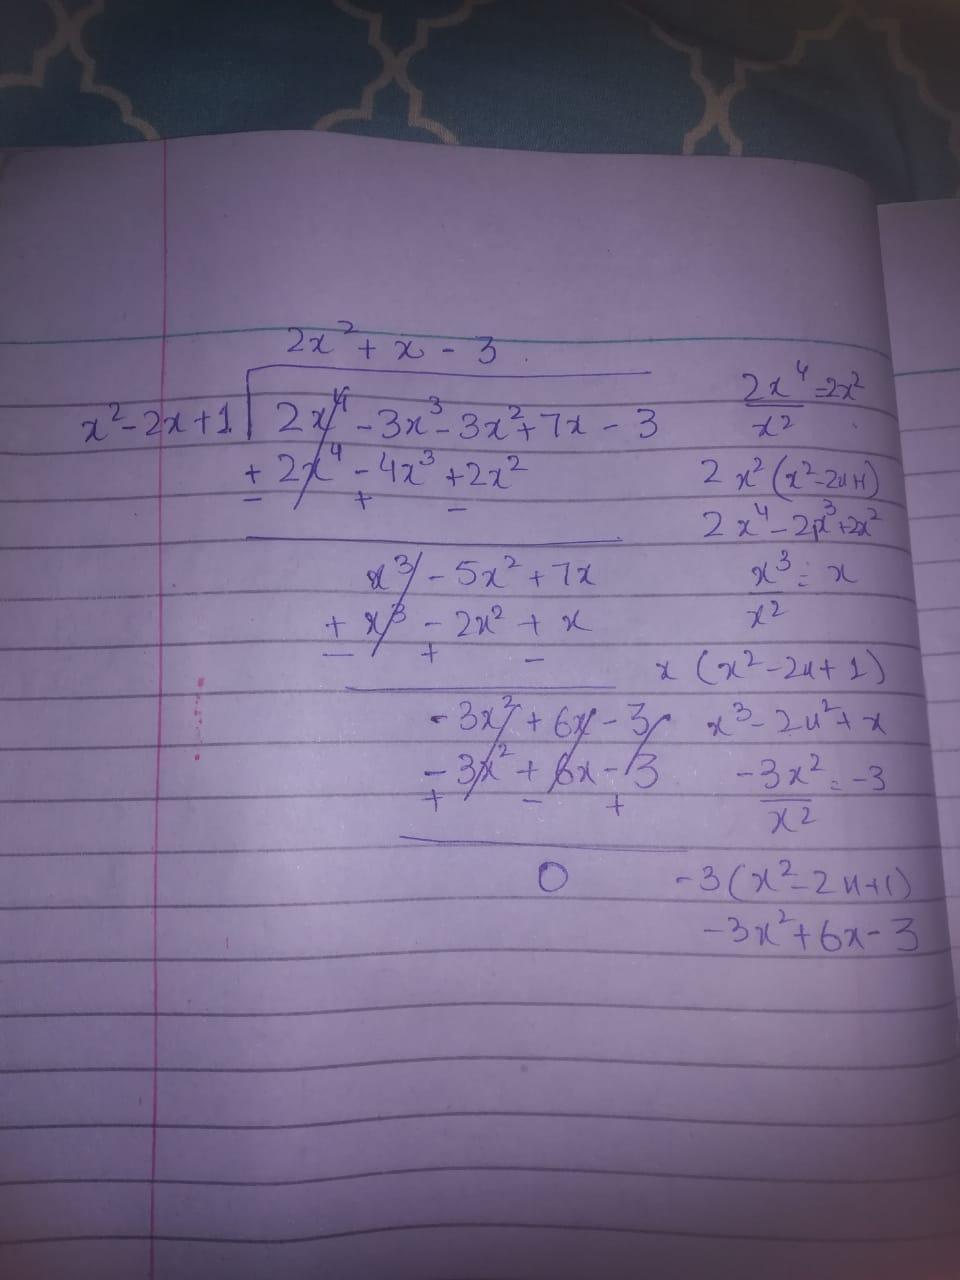 2x² + x - 3
x² - 2x + 1 | 2x⁴ - 3x³ - 3x² + 7x - 3
+ 2x⁴ - 4x³ + 2x²
- + -
x³ - 5x² + 7x
+ x³ - 2x² + x
- + -
- 3x² + 6x - 3
- 3x² + 6x - 3
+ - +
0
2x⁴ = 2x²
x²
2x² (x² - 2x + 1)
2x⁴ - 2x³ + 2x²
x³ = x
x²
x (x² - 2x + 1)
x³ - 2x² + x
-3x² = -3
x²
-3 (x² - 2x + 1)
-3x² + 6x - 3